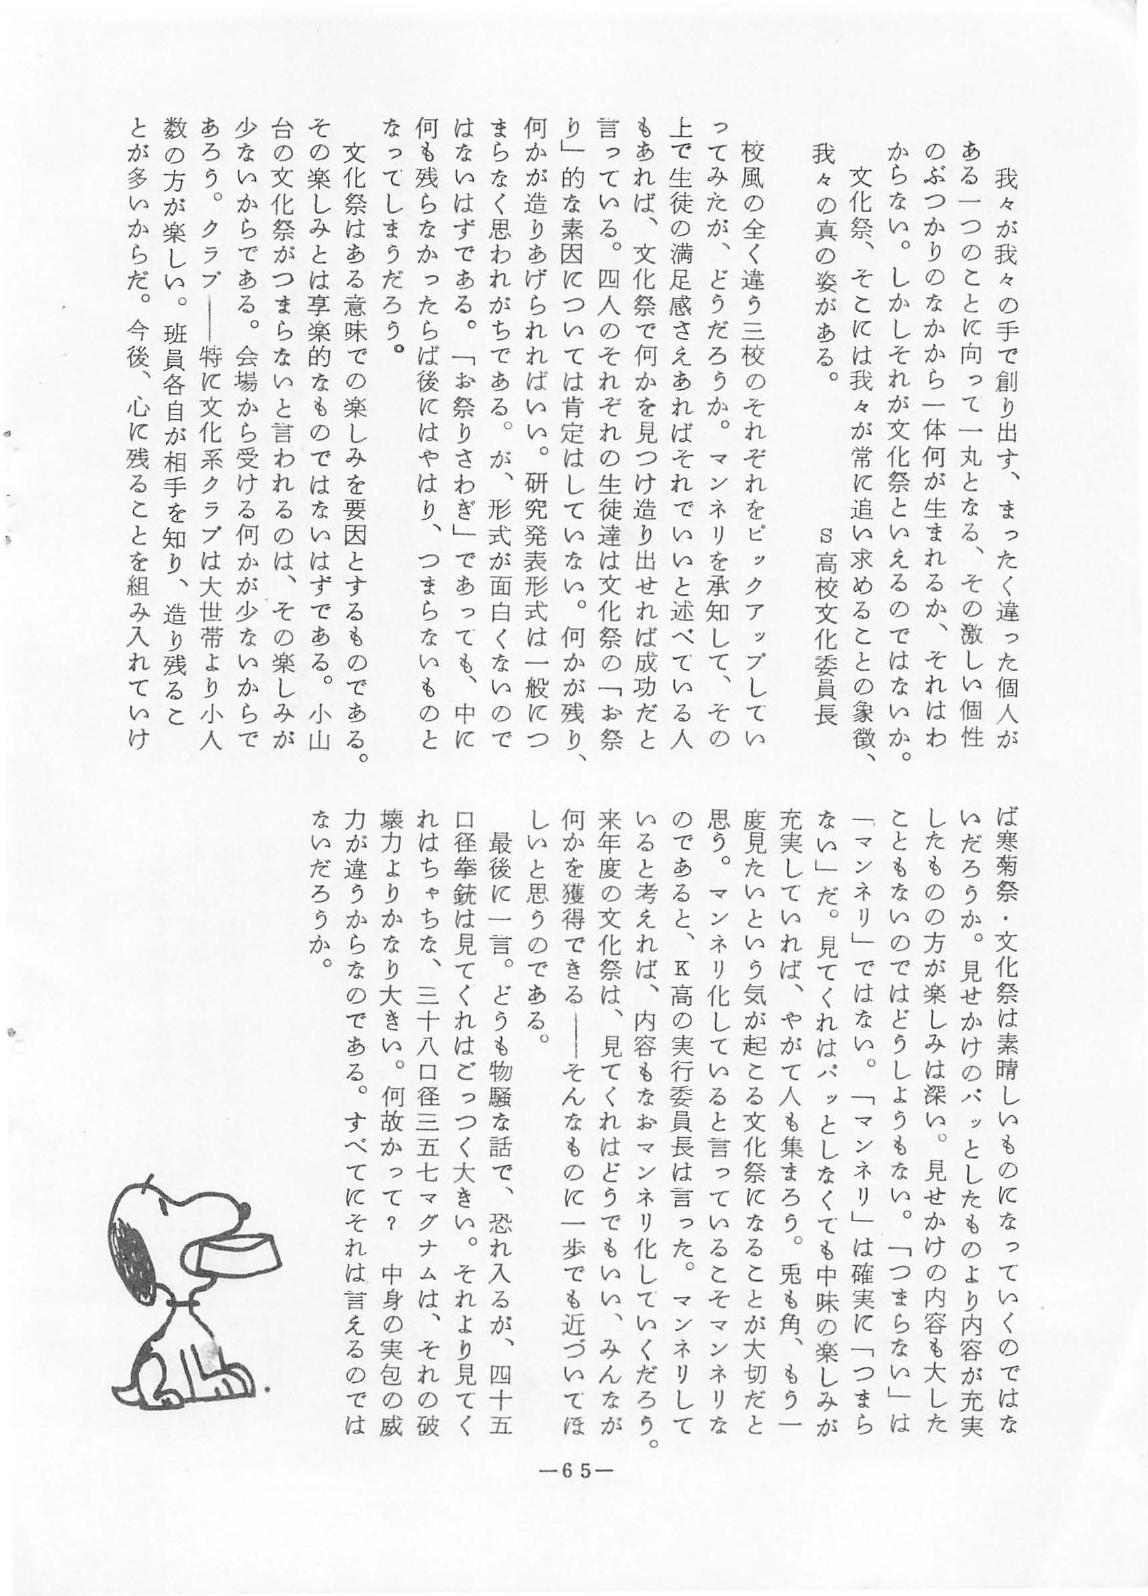 我々が我々の手で創り出す、まったく違った個人が
ある一つのことに向って一丸となる、その激しい個性
のぶつかりのなかから一体何が生まれるか、それはわ
からない。しかしそれが文化祭といえるのではないか。
文化祭、そこには我々が常に追い求めることの象徴、
我々の真の姿がある。　　　　S高校文化委員長
校風の全く違う三校のそれぞれをピックアップしてい
ってみたが、どうだろうか。マンネリを承知して、その
上で生徒の満足感さえあればそれでいいと述べている人
もあれば、文化祭で何かを見つけ造り出せれば成功だと
言っている。四人のそれぞれの生徒達は文化祭の「お祭
り」的な素因については肯定はしていない。何かが残り、
何かが造りあげられればいい。研究発表形式は一般につ
まらなく思われがちである。が、形式が面白くないので
はないはずである。「お祭りさわぎ」であっても、中に
何も残らなかったらば後にはやはり、つまらないものと
なってしまうだろう。
文化祭はある意味での楽しみを要因とするものである。
その楽しみとは享楽的なものではないはずである。小山
台の文化祭がつまらないと言われるのは、その楽しみが
少ないからである。会場から受ける何かが少ないからで
あろう。クラブ——特に文化系クラブは大世帯より小人
数の方が楽しい。班員各自が相手を知り、造り残るこ
とが多いからだ。今後、心に残ることを組み入れていけ
ば寒菊祭・文化祭は素晴しいものになっていくのではな
いだろうか。見せかけのパッとしたものより内容が充実
したものの方が楽しみは深い。見せかけの内容も大した
こともないのではどうしようもない。「つまらない」は
「マンネリ」ではない。「マンネリ」は確実に「つまら
ない」だ。見てくれはパッとしなくても中味の楽しみが
充実していれば、やがて人も集まろう。兎も角、もう一
度見たいという気が起こる文化祭になることが大切だと
思う。マンネリ化していると言っているこそマンネリな
のであると、K高の実行委員長は言った。マンネリして
いると考えれば、内容もなおマンネリ化していくだろう。
来年度の文化祭は、見てくれはどうでもいい、みんなが
何かを獲得できる——そんなものに一歩でも近づいてほ
しいと思うのである。
最後に一言。どうも物騒な話で、恐れ入るが、四十五
口径拳銃は見てくれはごっつく大きい。それより見てく
れはちゃちな、三十八口径三五七マグナムは、それの破
壊力よりかなり大きい。何故かって?　中身の実包の威
力が違うからなのである。すべてにそれは言えるのでは
ないだろうか。
—65—